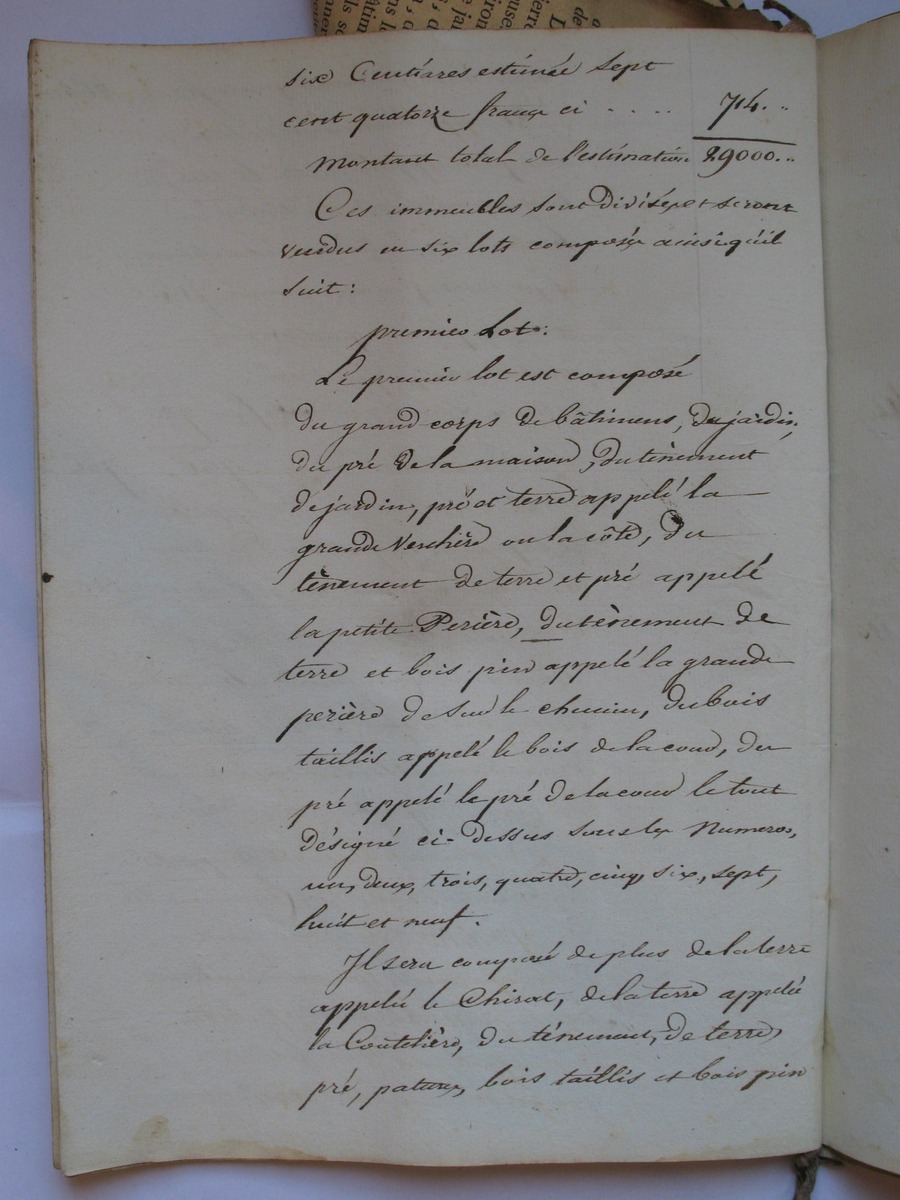 six Centiares estimée sept
cent quatorze francs ci . . . . 714. ..
montant total de l'estimation 29000...
Ces immeubles sont divisés et seront
vendus en six lots composés ainsi qu'il
suit :
premier Lot :
Le premier lot est composé
du grand corps de bâtimens, du jardin,
du pré de la maison, du tènement
de jardin, pré et terre appelé la
grande Verchère ou la côte, du
tènement de terre et pré appelé
la petite Perière, du tènement de
terre et bois pin appelé la grande
perière de sur le chemin, du bois
taillis appelé le bois de la cour, du
pré appelé le pré de la cour le tout
désigné ci-dessus sous les Numeros,
un, deux, trois, quatre, cinq, six, sept,
huit et neuf.
Il sera composé de plus de la terre
appelée le Chirat, de la terre appelée
la Coutelière, du ténement, de terre,
pré, pature, bois taillis et bois pin